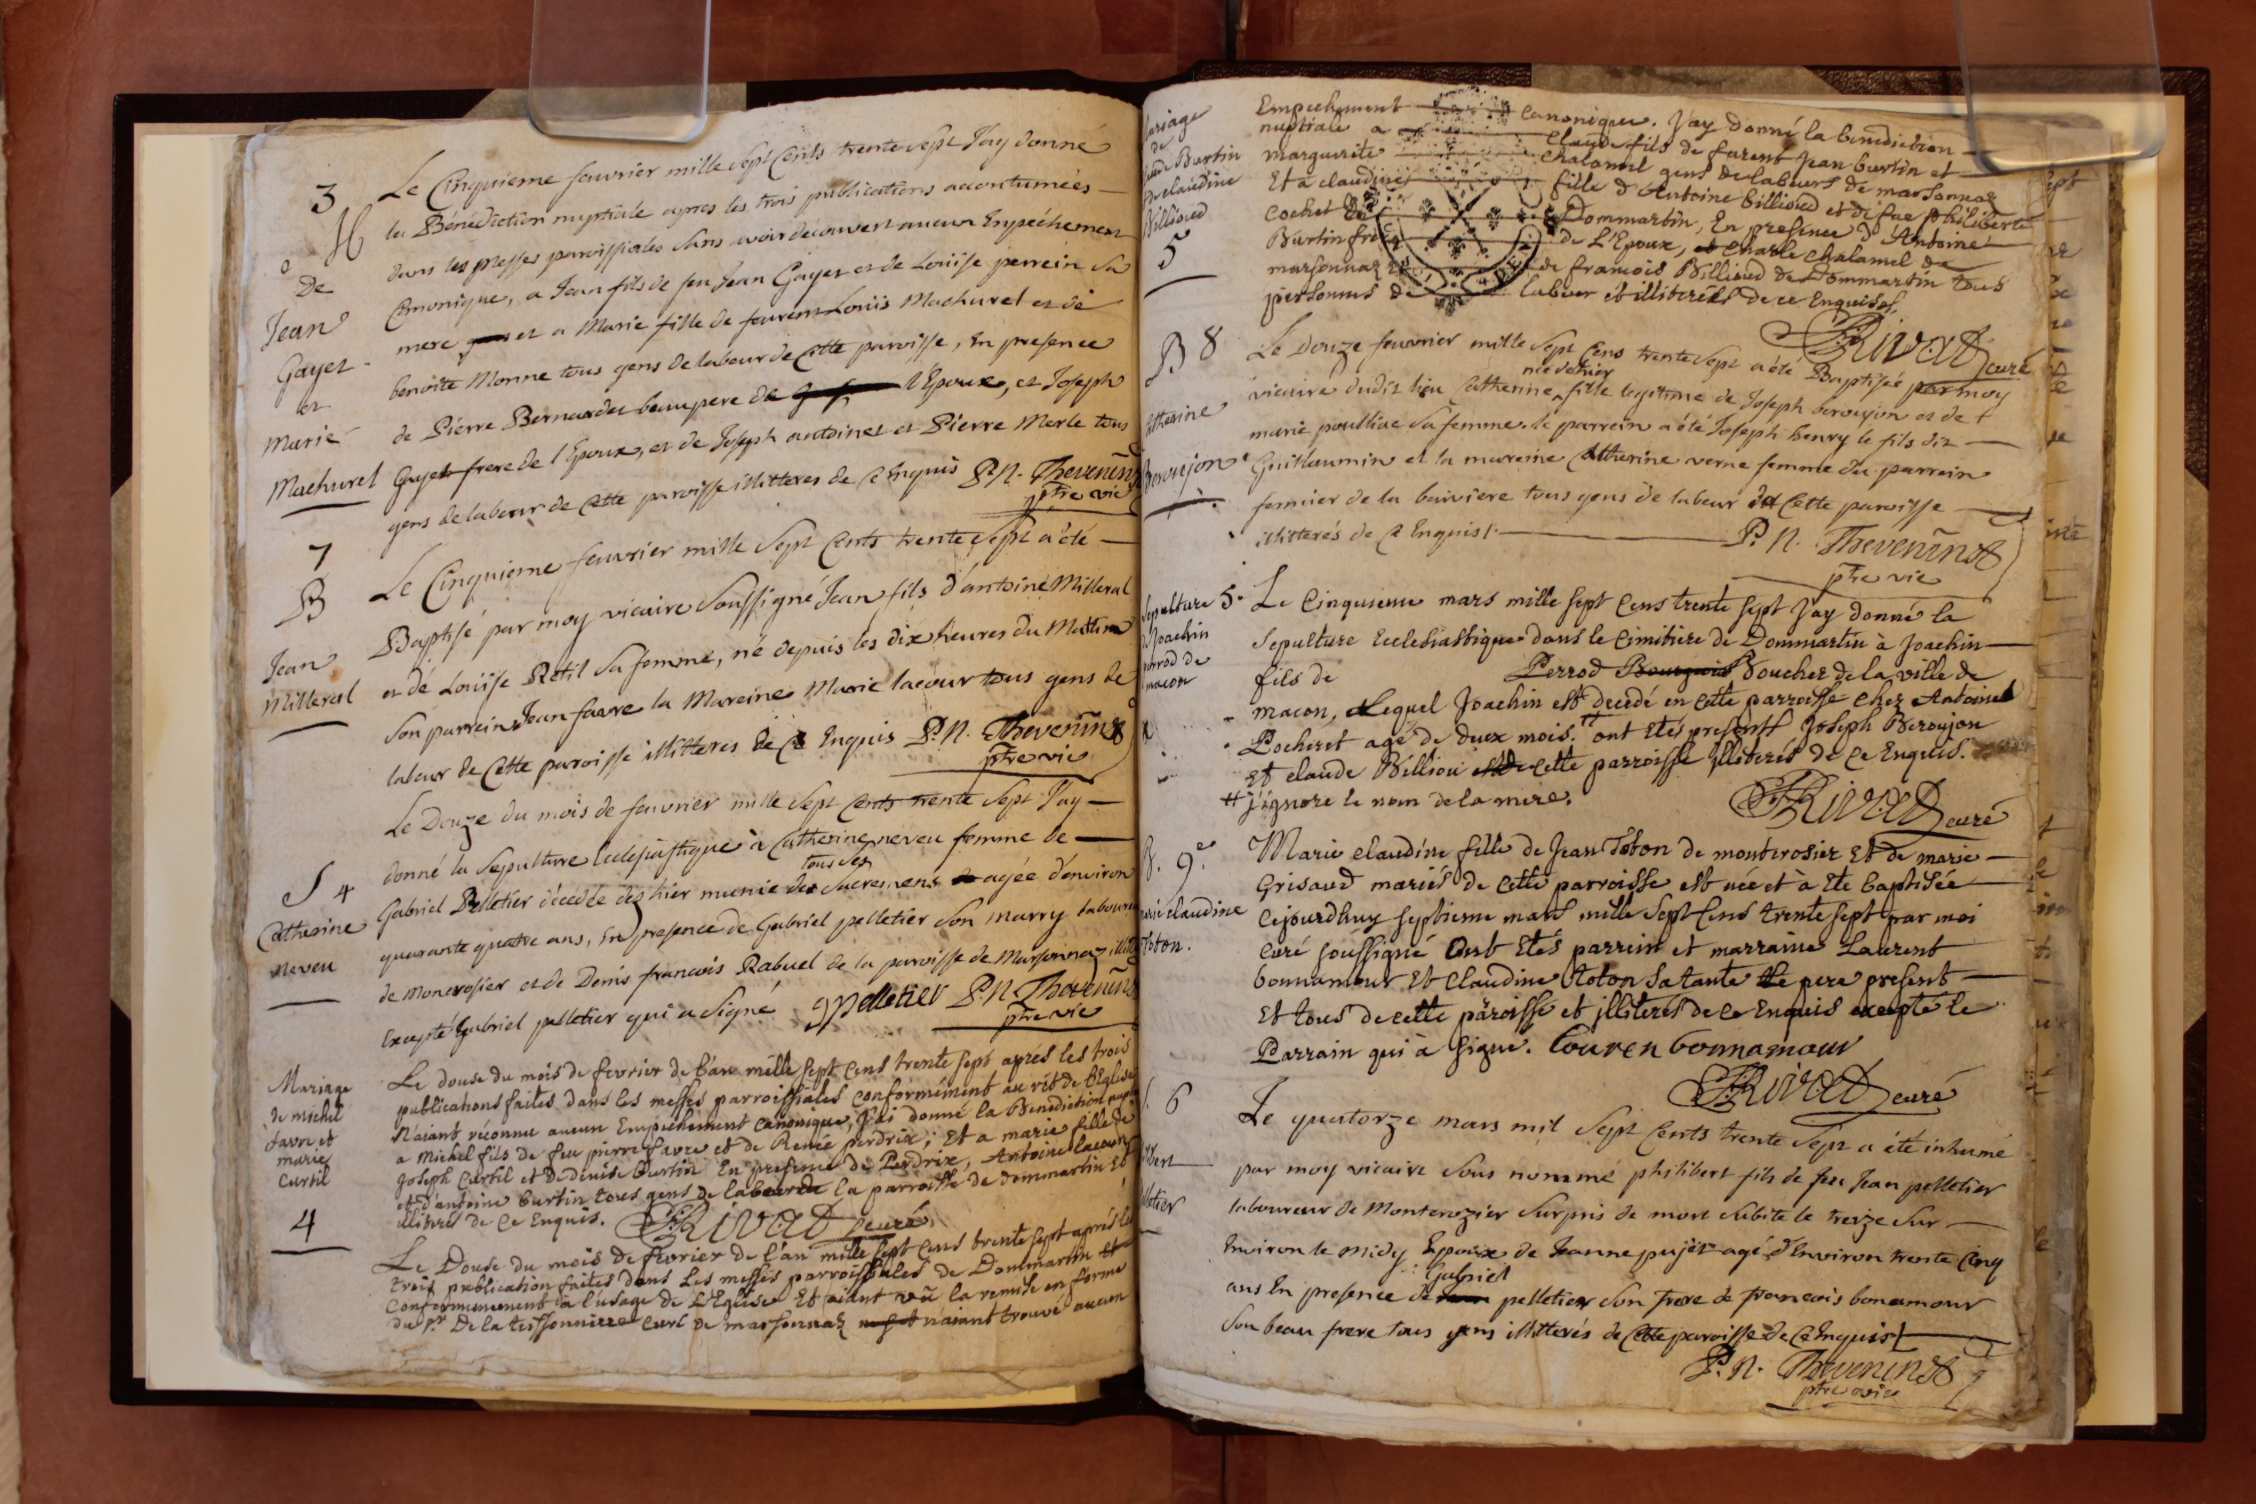 3
M
De
Jean
Gayet
et
Marie
Machurel
Le Cinquieme feuvrier mille sept Cents trente sept J'ay donné
la Bénédiction nuptiale apres les trois publications accoutumées
dans les messes paroissiales sans avoir decouvert aucun Empéchement
Canonique, a Jean fils de feu Jean Gayet et de Louise perrein sa
mere et a Marie fille de feurent Louis Machurel et de
benoite Monne tous gens de labour de Cette paroisse, En presence
de Pierre Bernardet beaupere de l'Epoux, et Joseph
Gayet frere de l'Epoux, et de Joseph antoinet et Pierre Merle tous
gens de labeur de Cette paroisse illitteres de Ce Enquis P. N. Thevenin
ptre vic
7
B
Jean
Milleral
Le Cinquieme feuvrier mille sept Cents trente sept a été
Baptisé par moy vicaire soussigné Jean fils d'antoine Milleral
et de Louise Retil sa femme, né depuis les dix heures du Mattin
son parrein Jean favre la Mareine Marie lacour tous gens de
labeur de Cette paroisse illitteres de Ce Enquis P. N. Thevenin
ptre vic
S 4
Catherine
neveu
Le Douze du mois de feuvrier mille sept Cents trente sept J'ay
donné la sepulture Ecclesiastique à Catherine neveu femme de
tous ses
Gabriel Pelletier décédée dès hier munie des Sacremens agée d'environ
quarante quatre ans, En presence de Gabriel pelletier son marry laboureur
de Moncrosier et de Denis francois Rabuel de la paroisse de Marsonnaz
Excepté Gabriel pelletier qui a signé gpelletier P. N. Thevenin
ptre vic
Mariage
de michel
favre et
marie
Curtil
4
Le douse du mois de fevrier de l'an mille sept Cens trente sept apres les trois
publications faites dans les messes parroissiales conformément au rit de l'Eglise
N'aiant reconnu aucun Empéchement Canonique, J'ai donné la Benediction
a Michel fils de feu pierre favre et de Renée perdrix; Et a marie fille de
Joseph Curtil et de denise Burtin En presence de Perdrix, Antoine Lacour
et d'antoine burtin tous gens de labeur de la parroisse de dommartin Et
illiteres de Ce Enquis. Rivat curé
Le Douse du mois de fevrier de l'an mille sept Cens trente sept après les
trois publication faites dans les messes parroissiales de Dommartin Et
Conformement à l'usage de L'Eglise Et aiant vu la remise en forme
du Sr. De la teyssonniere curé de marsonnaz n'aiant trouvé aucun
Mariage
de
Burtin
claudine
Billioud
5
Empechement canonique. J'ay donné la benediction
nuptiale a claude fils de furent Jean burtin et
marguerite chalamel gens de labeurs de marsonnaz
Et a claudine fille d'Antoine billioud et de fue philiberte
Cochet Dommartin, En presence d'Antoine
Burtin frere de L'Epoux, Charle Chalamel de
marsonnaz de francois Billioud de Dommartin tous
personnes de labeur et illiterées de ce Enquises.
Rivat curé
B 8
Catherine
Beroujon
Le Douze feuvrier mille sept Cens trente sept a été Baptisée par moy
née d'hier
vicaire dudit lieu Catherine fille legitime de Joseph beroujon et de
marie poulliac sa femme. le parrein a été Joseph henry le fils dit
Guillaumin et la mareine Catherine verne femme du parrein
fermier de la baiviere tous gens de labeur de Cette paroisse
illitterés de Ce Enquis
P. N. Thevenin
ptre vic
Sepulture 5.
Joachin
perrod de
macon
Le Cinquieme mars mille sept Cens trente sept J'ay donné la
sepulture Ecclesiastique dans le Cimitiere de Dommartin à Joachin
fils de Perrod Bourgeois Boucher de la ville de
macon, Lequel Joachin est decedé en Cette parroisse Chez Antoine
Pocheret agé de deux mois. ont Etés presents Joseph Beroujon
Et claude Billiou Cette parroisse illiterés de Ce Enquis.
# j'ignore le nom de la mere.
Rivat curé
B. 9e
marie claudine
Toton.
Marie claudine fille de Jean Toton de montcrosier Et de marie
Grisaud mariés de Cette parroisse est née et à Eté baptisée
Cejourdhuy septieme mars mille sept Cens trente sept par moi
Curé soussigné Ont Etés parrein et marraine Laurent
bonnamour Et Claudine Toton sa tante Le pere present
Et tous de cette paroisse et illiterés de Ce Enquis excepté le
Parrain qui à signe. louren bonnamour
Rivat curé
6
Le quatorze mars mil sept Cents trente sept a été inhumé
par moy vicaire sous nommé philibert fils de feu Jean pelletier
laboureur de Monterozier surpris de mort subite le treize sur
Environ le midy Epoux de Jeanne pujet agé d'Environ trente Cinq
Gabriel
ans En presence de pelletier son frere de francois bonamour
son beau frere tous gens illitterés de Cette paroisse de Ce Enquis
P. N. Thevenin
ptre vic